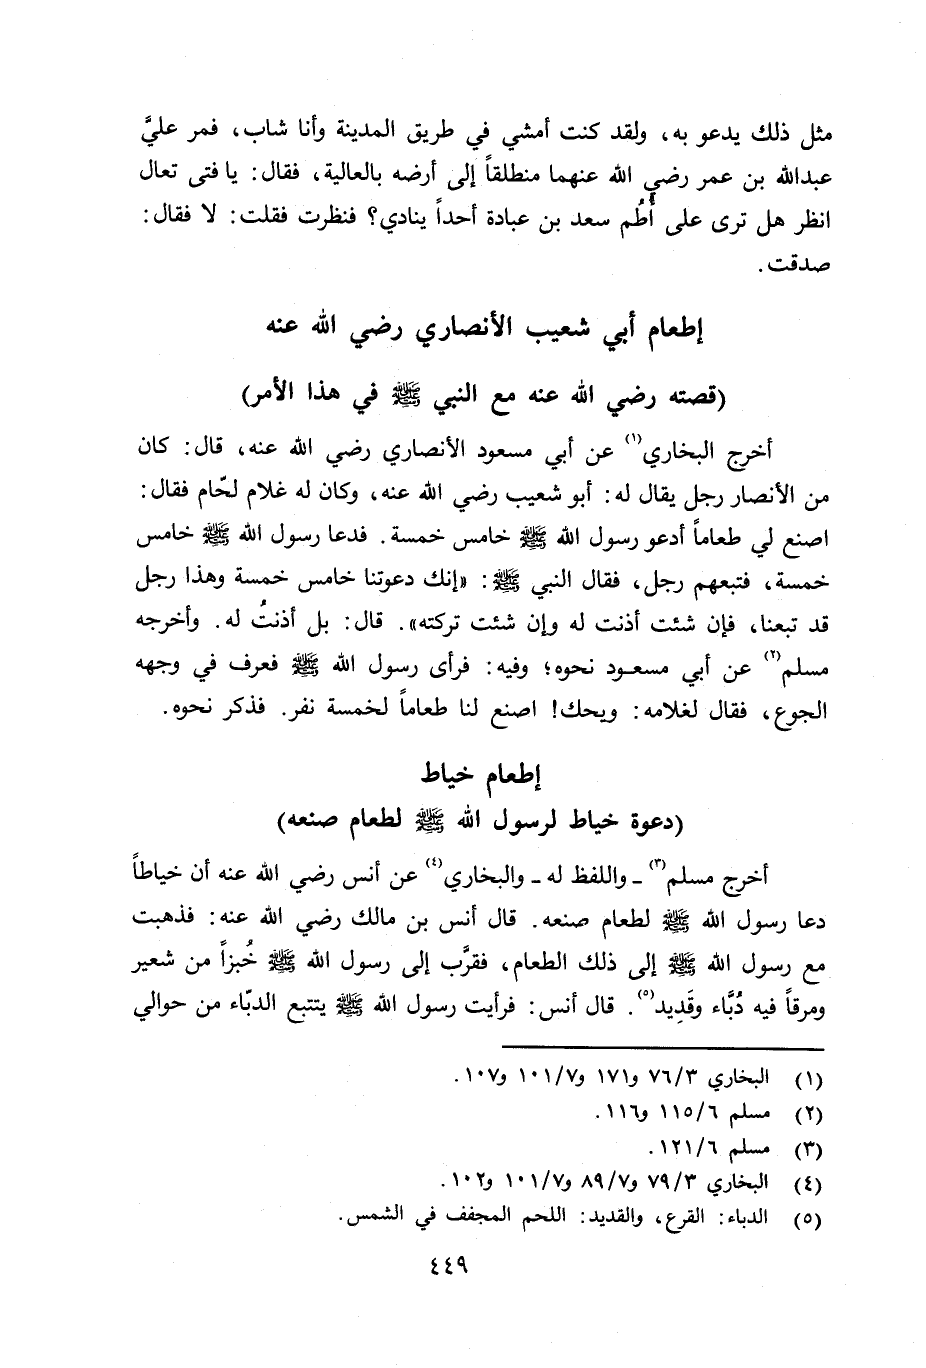 مثل ذلك يدعو به، ولقد كنت أمشي في طريق المدينة وأنا شاب، فمر عليَّ
عبدالله بن عمر رضي الله عنهما منطلقاً إلى أرضه بالعالية، فقال: يا فتى تعال
انظر هل ترى على أُطُم سعد بن عبادة أحداً ينادي؟ فنظرت فقلت: لا فقال:
صدقت.
إطعام أبي شعيب الأنصاري رضي الله عنه
(قصته رضي الله عنه مع النبي ﷺ في هذا الأمر)
أخرج البخاري(١) عن أبي مسعود الأنصاري رضي الله عنه، قال: كان
من الأنصار رجل يقال له: أبو شعيب رضي الله عنه، وكان له غلام لحّام فقال:
اصنع لي طعاماً أدعو رسول الله ﷺ خامس خمسة. فدعا رسول الله ﷺ خامس
خمسة، فتبعهم رجل، فقال النبي ﷺ: «إنك دعوتنا خامس خمسة وهذا رجل
قد تبعنا، فإن شئت أذنت له وإن شئت تركته». قال: بل أذنتُ له. وأخرجه
مسلم(٢) عن أبي مسعود نحوه؛ وفيه: فرأى رسول الله ﷺ فعرف في وجهه
الجوع، فقال لغلامه: ويحك! اصنع لنا طعاماً لخمسة نفر. فذكر نحوه.
إطعام خياط
(دعوة خياط لرسول الله ﷺ لطعام صنعه)
أخرج مسلم(٣) ـ واللفظ له ـ والبخاري(٤) عن أنس رضي الله عنه أن خياطاً
دعا رسول الله ﷺ لطعام صنعه. قال أنس بن مالك رضي الله عنه: فذهبت
مع رسول الله ﷺ إلى ذلك الطعام، فقرَّب إلى رسول الله ﷺ خُبزاً من شعير
ومرقاً فيه دُبَّاء وقَدِيد(٥). قال أنس: فرأيت رسول الله ﷺ يتتبع الدبّاء من حوالي
(١) البخاري ٧٦/٣ و١٧١ و١٠١/٧ و١٠٧.
(٢) مسلم ١١٥/٦ و١١٦.
(٣) مسلم ١٢١/٦.
(٤) البخاري ٧٩/٣ و٨٩/٧ و١٠١/٧ و١٠٢.
(٥) الدباء: القرع، والقديد: اللحم المجفف في الشمس.
٤٤٩